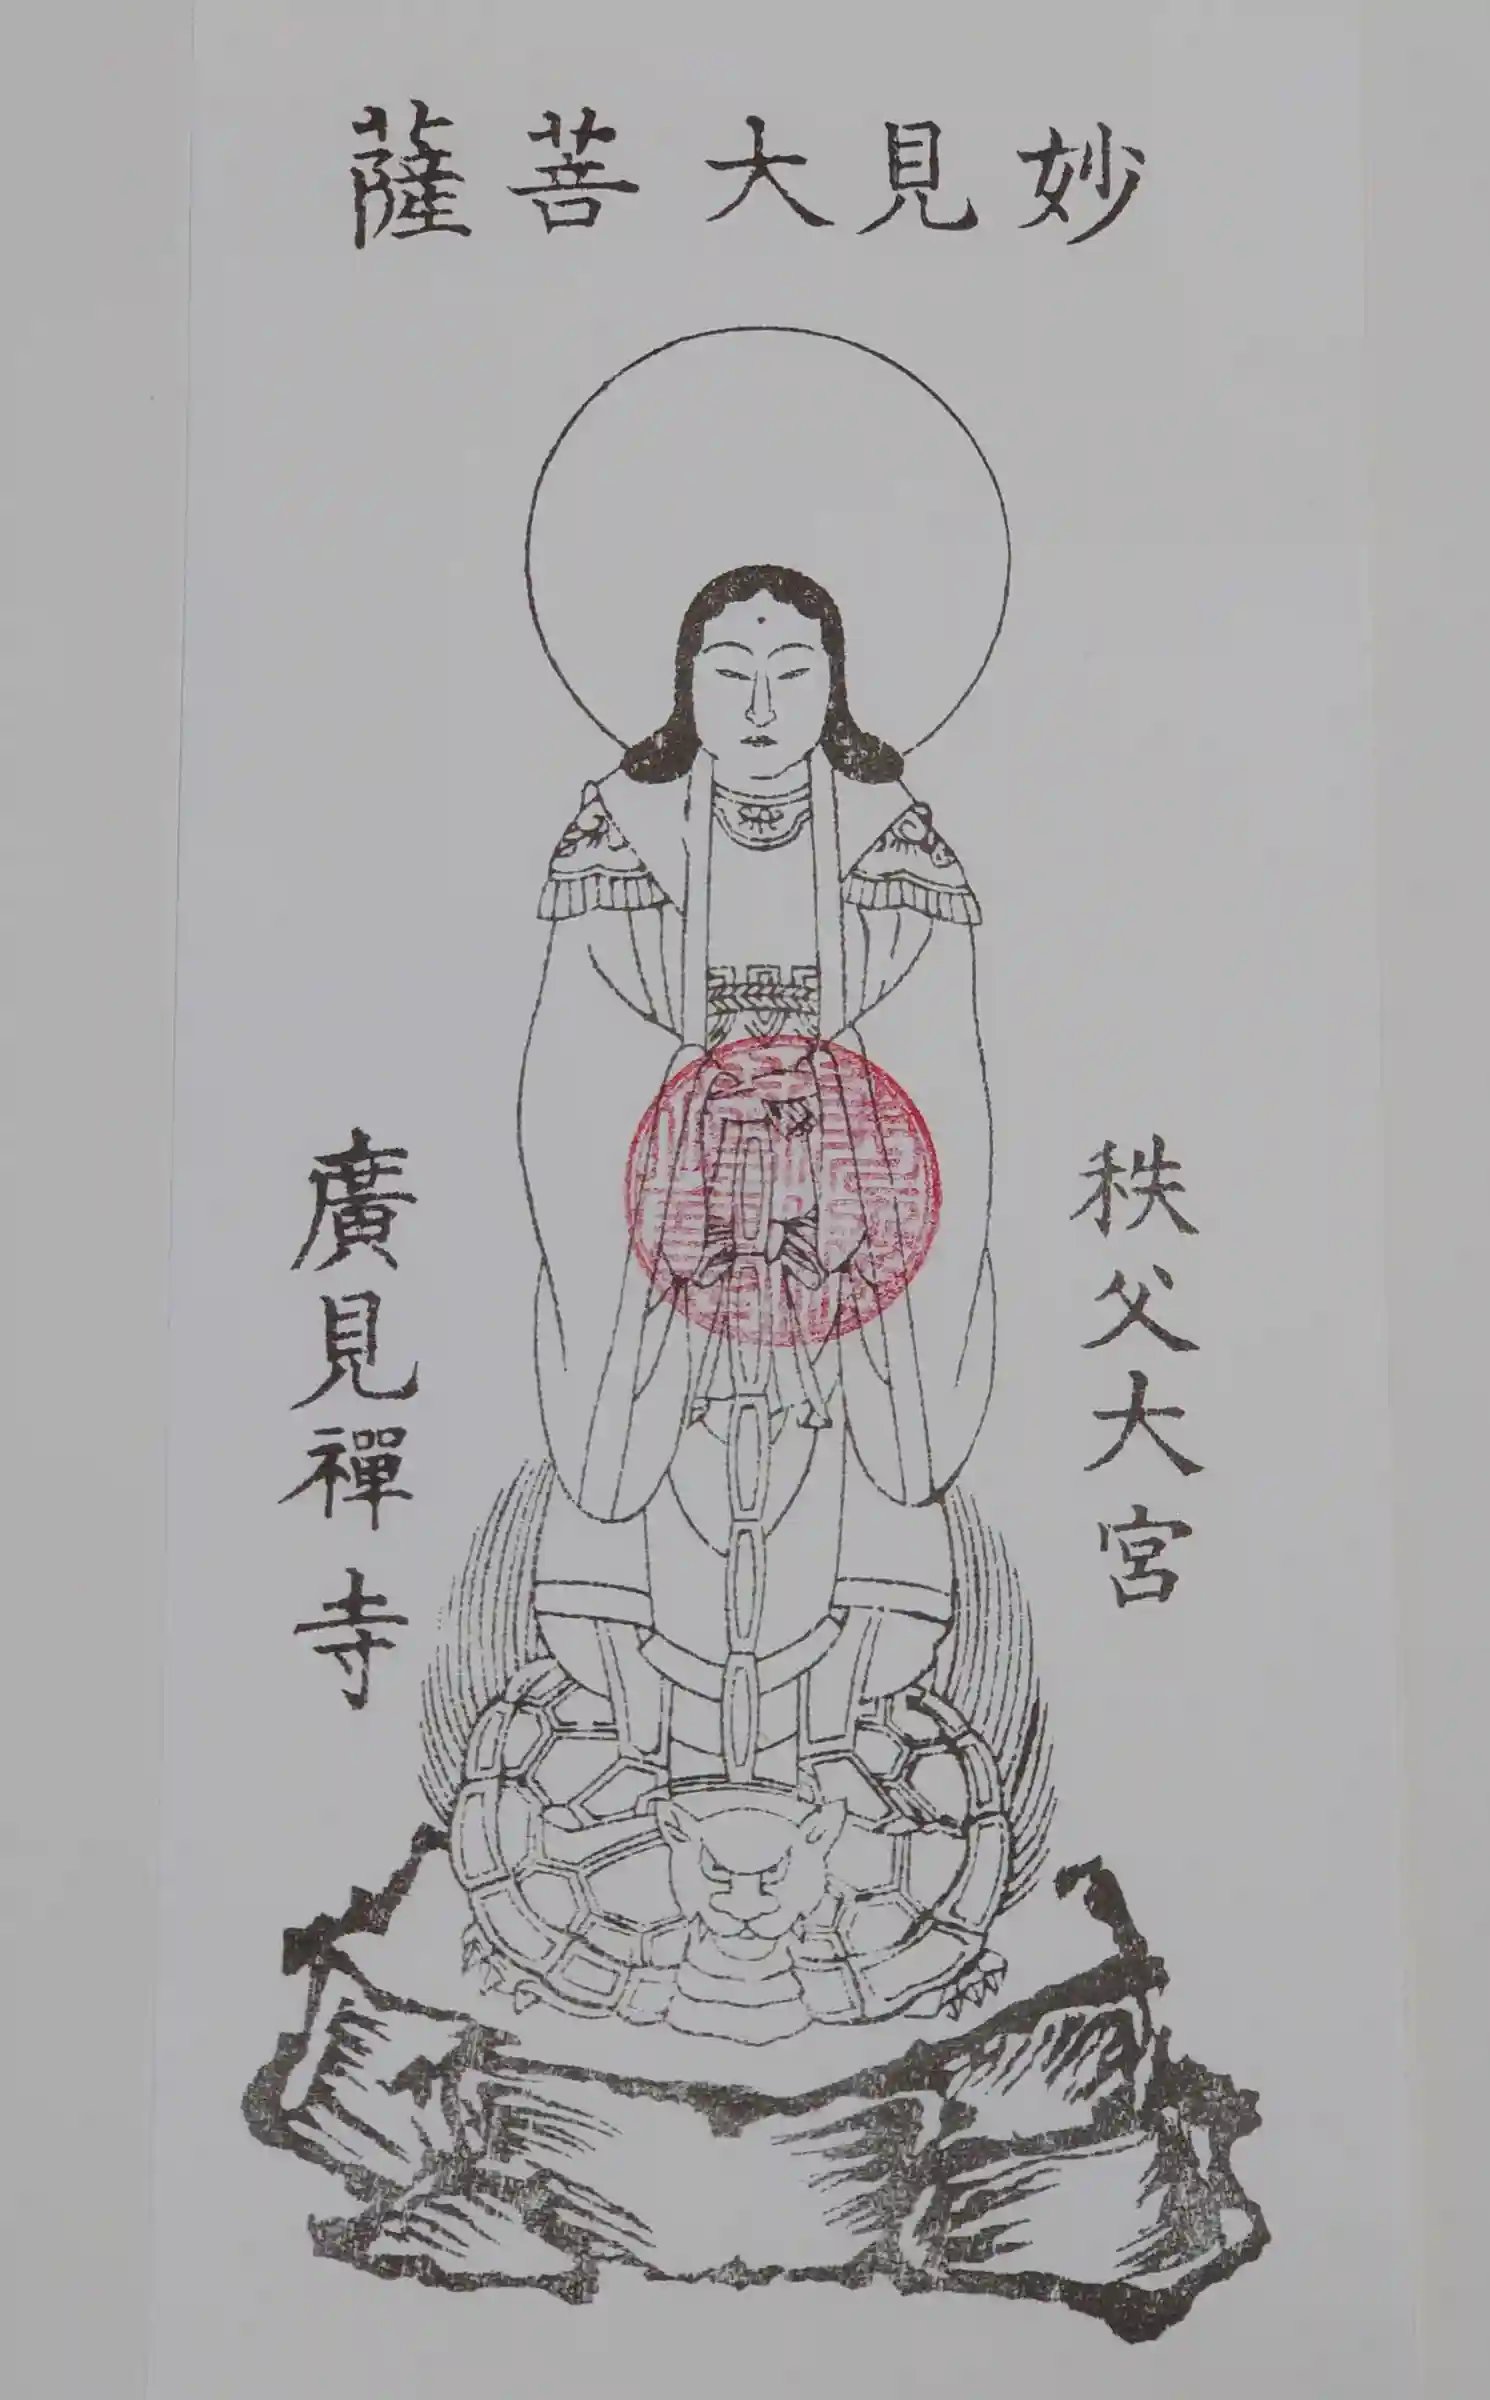 妙見大菩薩
秩父大宮
廣見禪寺